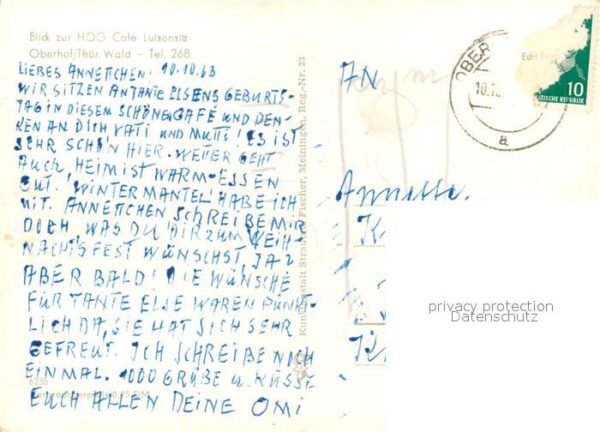 Blick zur HOG Café Luisensitz
Oberhof/Thür. Wald - Tel. 268
LIEBES ANNETTCHEN! 10.10.63
WIR SITZEN AN TANTE ELSENS GEBURTS-
TAG IN DIESEM SCHÖNEN CAFÉ UND DEN-
KEN AN DICH VATI UND MUTTI! ES IST
SEHR SCHÖN HIER. WETTER GEHT
AUCH, HEIM IST WARM - ESSEN
GUT. WINTERMANTEL HABE ICH
MIT. ANNETTCHEN SCHREIBE MIR
DOCH WAS DU DIR ZUM WEIH-
NACHTSFEST WÜNSCHST, JA?
ABER BALD! DIE WÜNSCHE
FÜR TANTE ELSE WAREN PÜNKT-
LICH DA, SIE HAT SICH SEHR
GEFREUT. ICH SCHREIBE NOCH
EINMAL. 1000 GRÜßE u. KÜSSE
EUCH ALLEN DEINE OMI
6235
Kunstanstalt Straub & Fischer, Meiningen, Reg.-Nr. 23
AN
Annette
OBER
10.10
a
10
DEUTSCHE REPUBLIK
privacy protection
Datenschutz